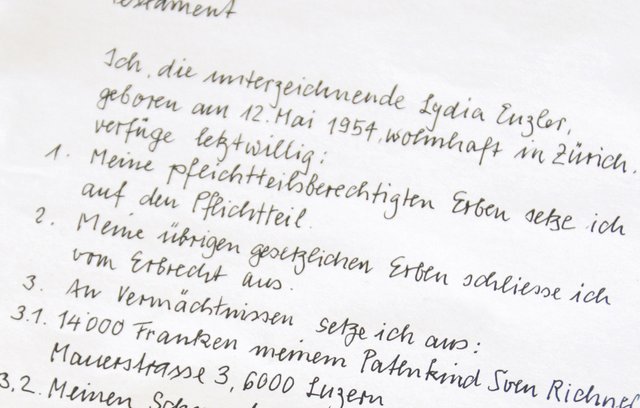 Testament
Ich, die unterzeichnende Lydia Enzler,
geboren am 12. Mai 1954, wohnhaft in Zürich,
verfüge letztwillig:
1. Meine pflichtteilsberechtigten Erben setze ich
auf den Pflichtteil.
2. Meine übrigen gesetzlichen Erben schliesse ich
vom Erbrecht aus.
3. An Vermächtnissen setze ich aus:
3.1. 14'000 Franken meinem Patenkind Sven Richner
Mauerstrasse 3, 6000 Luzern
3.2. Meinen